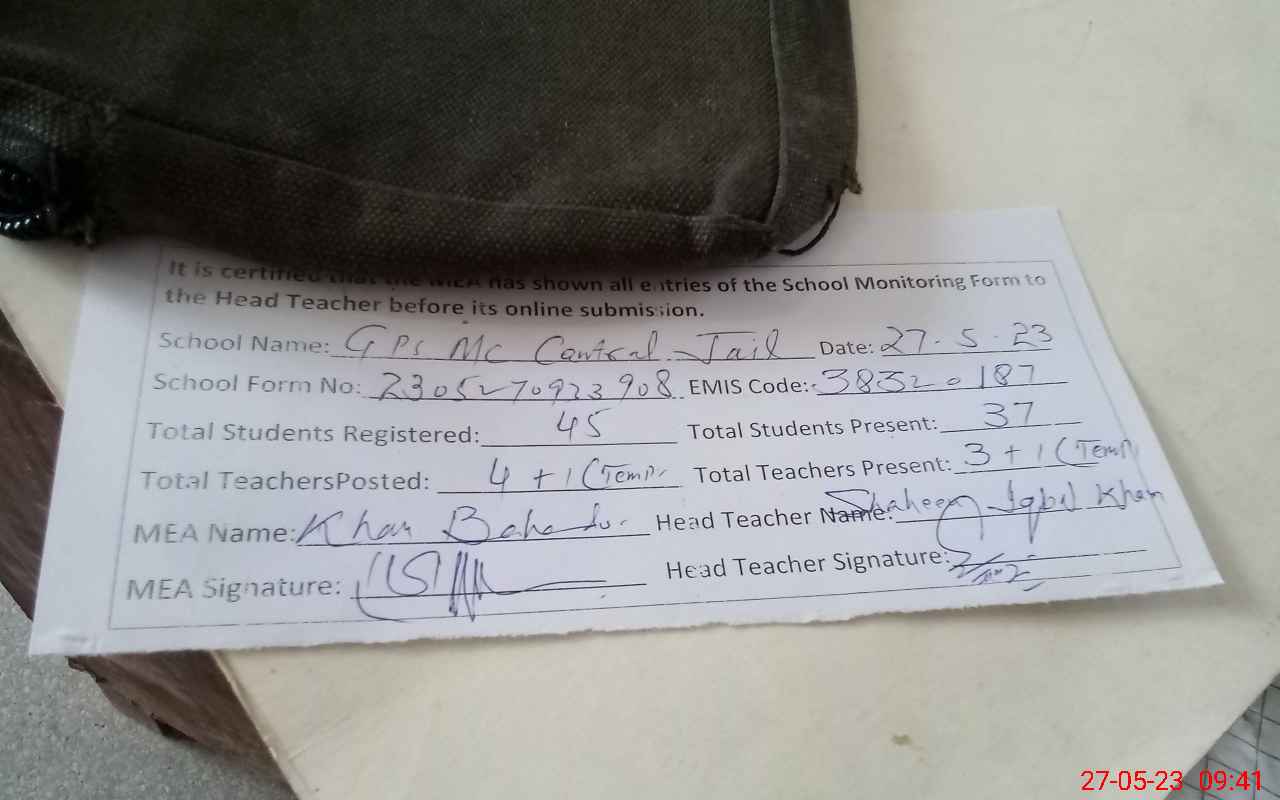 It is certified that the MEA has shown all entries of the School Monitoring Form to
the Head Teacher before its online submission.
School Name: GPS MC Central Jail Date: 27.5.23
School Form No: 2305270923908 EMIS Code: 38320187
Total Students Registered: 45 Total Students Present: 37
Total TeachersPosted: 4+1 (Temp. Total Teachers Present: 3+1 (Temp)
MEA Name: Khan Bahadur Head Teacher Name: Shaheen Iqbal Khan
MEA Signature: Head Teacher Signature:
27-05-23 09:41